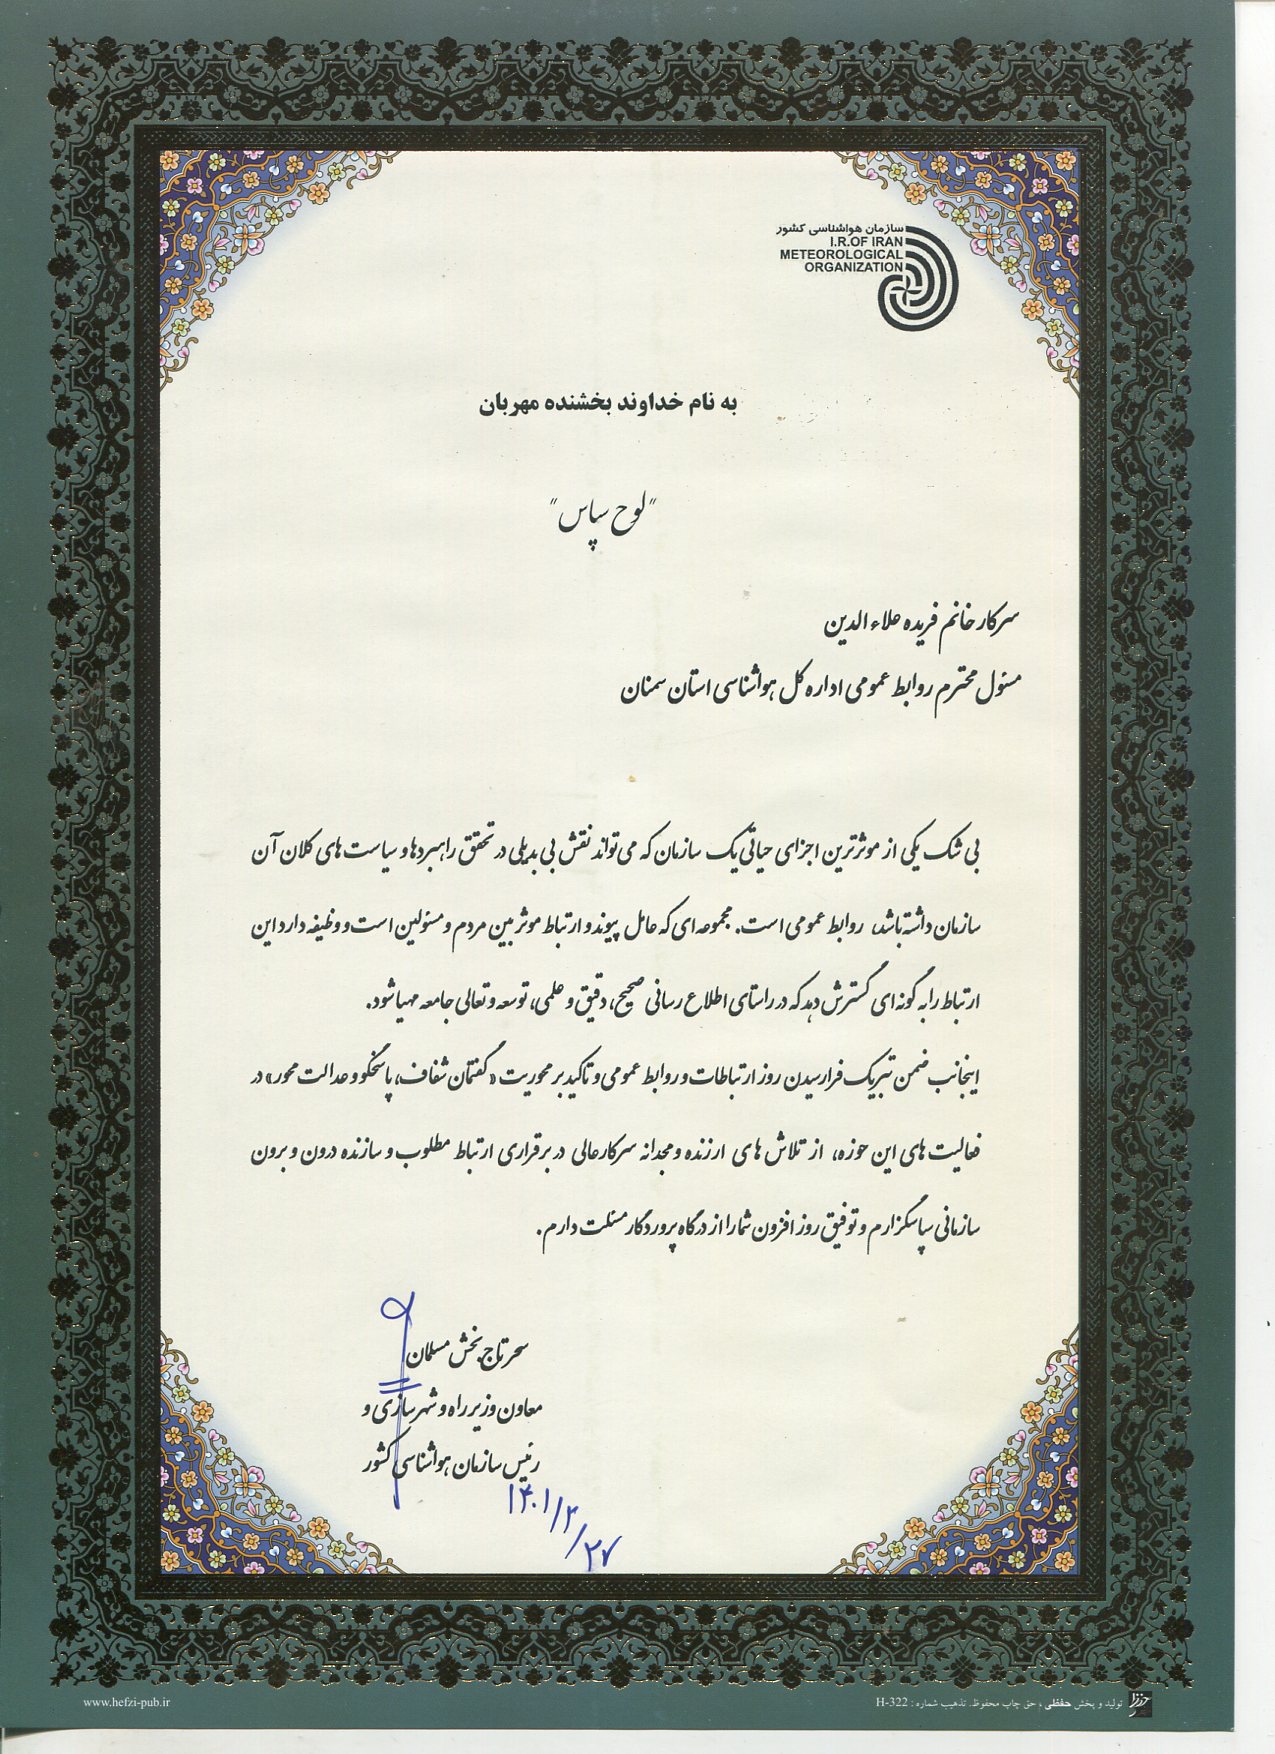 سازمان هواشناسی کشور
I.R.OF IRAN
METEOROLOGICAL
ORGANIZATION
به نام خداوند بخشنده مهربان
"لوح سپاس"
سرکار خانم فریده علاء الدین
مسئول محترم روابط عمومی اداره کل هواشناسی استان سمنان
بی شک یکی از موثرترین اجزای حیاتی یک سازمان که می تواند نقش بی بدیلی در تحقق راهبردها و سیاست های کلان آن
سازمان داشته باشد، روابط عمومی است. مجموعه ای که عامل پیوند و ارتباط موثر بین مردم و مسئولین است و وظیفه دارد این
ارتباط را به گونه ای گسترش دهد که در راستای اطلاع رسانی صحیح، دقیق و علمی، توسعه و تعالی جامعه مهیا شود.
اینجانب ضمن تبریک فرارسیدن روز ارتباطات و روابط عمومی و تاکید بر محوریت «گفتمان شفاف، پاسخگو و عدالت محور» در
فعالیت های این حوزه، از تلاش های ارزنده و مجدانه سرکارعالی در برقراری ارتباط مطلوب و سازنده درون و برون
سازمانی سپاسگزارم و توفیق روز افزون شما را از درگاه پروردگار مسئلت دارم.
سحر تاج بخش مسلمان
معاون وزیر راه و شهرسازی و
رئیس سازمان هواشناسی کشور
۱۴۰۱/۲/۲۷
www.hefzi-pub.ir
تولید و پخش حفظی ، حق چاپ محفوظ. تذهیب شماره : H-322